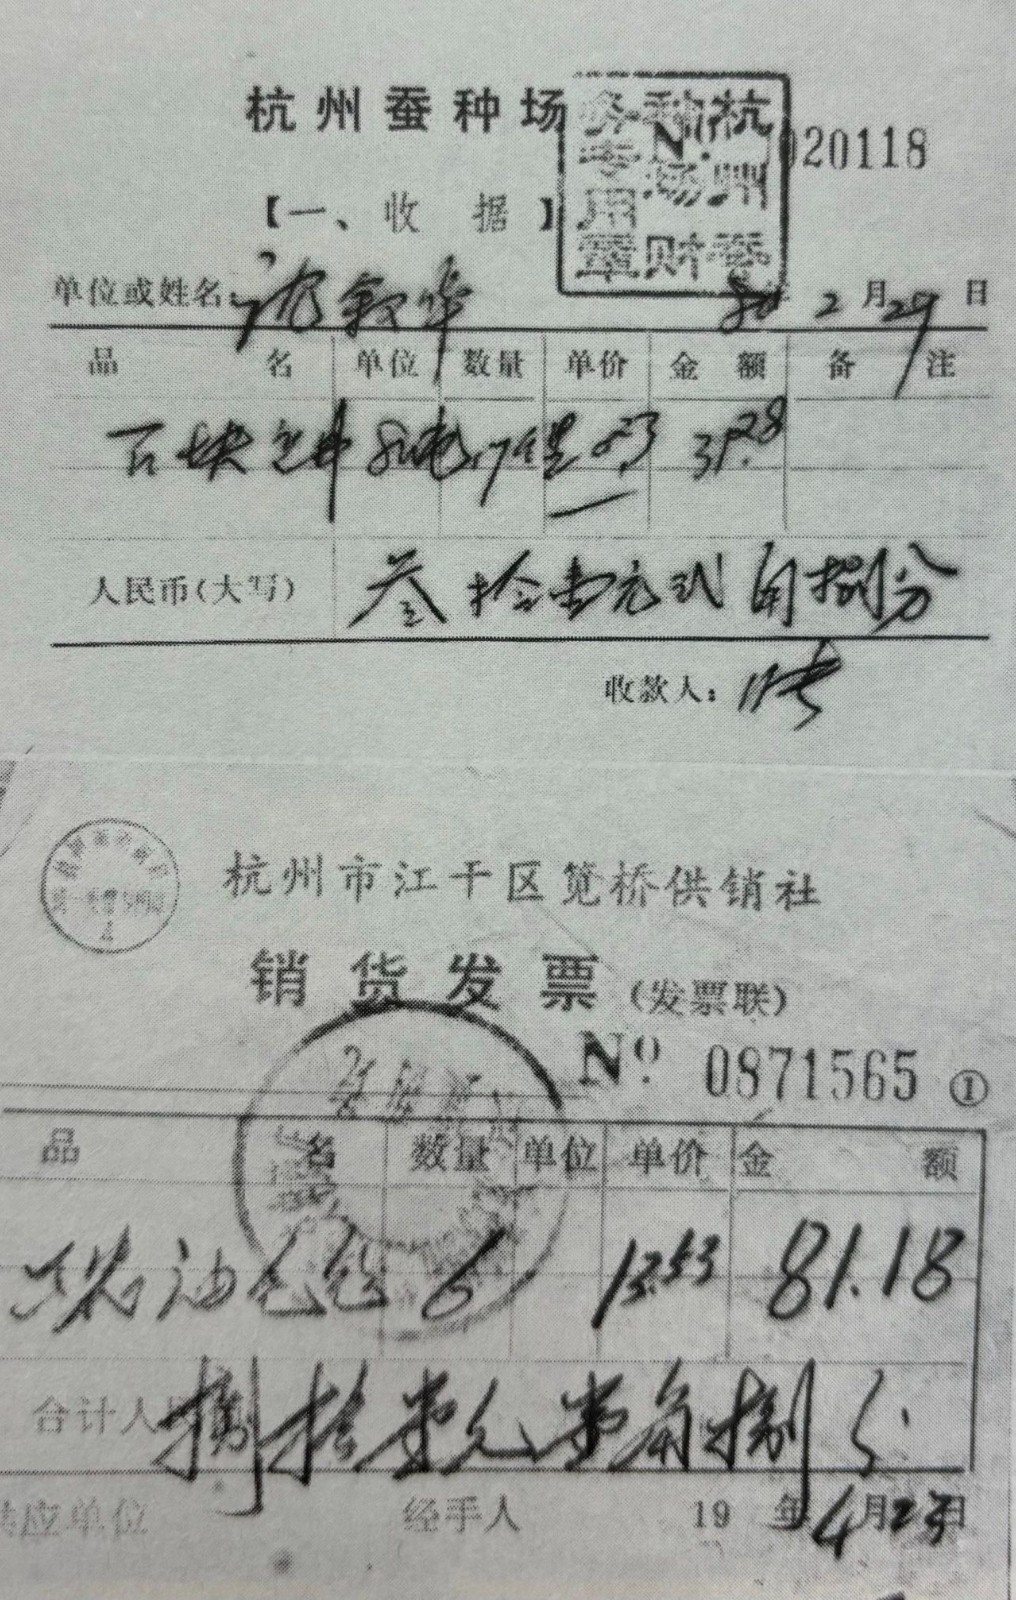 杭州蚕种场
No. 020118
【一、收 据】
杭州蚕种场财务专用章
单位或姓名 2月29日
品 名 单位 数量 单价 金 额 备 注
31.28
人民币(大写) 叁拾壹元弍角捌分
收款人:
杭州市江干区笕桥供销社
销货发票(发票联)
No 0871565 ①
品 名 数量 单位 单价 金 额
6 13.53 81.18
合计人民币 捌拾壹元壹角捌分
供应单位 经手人 19 年4月23日